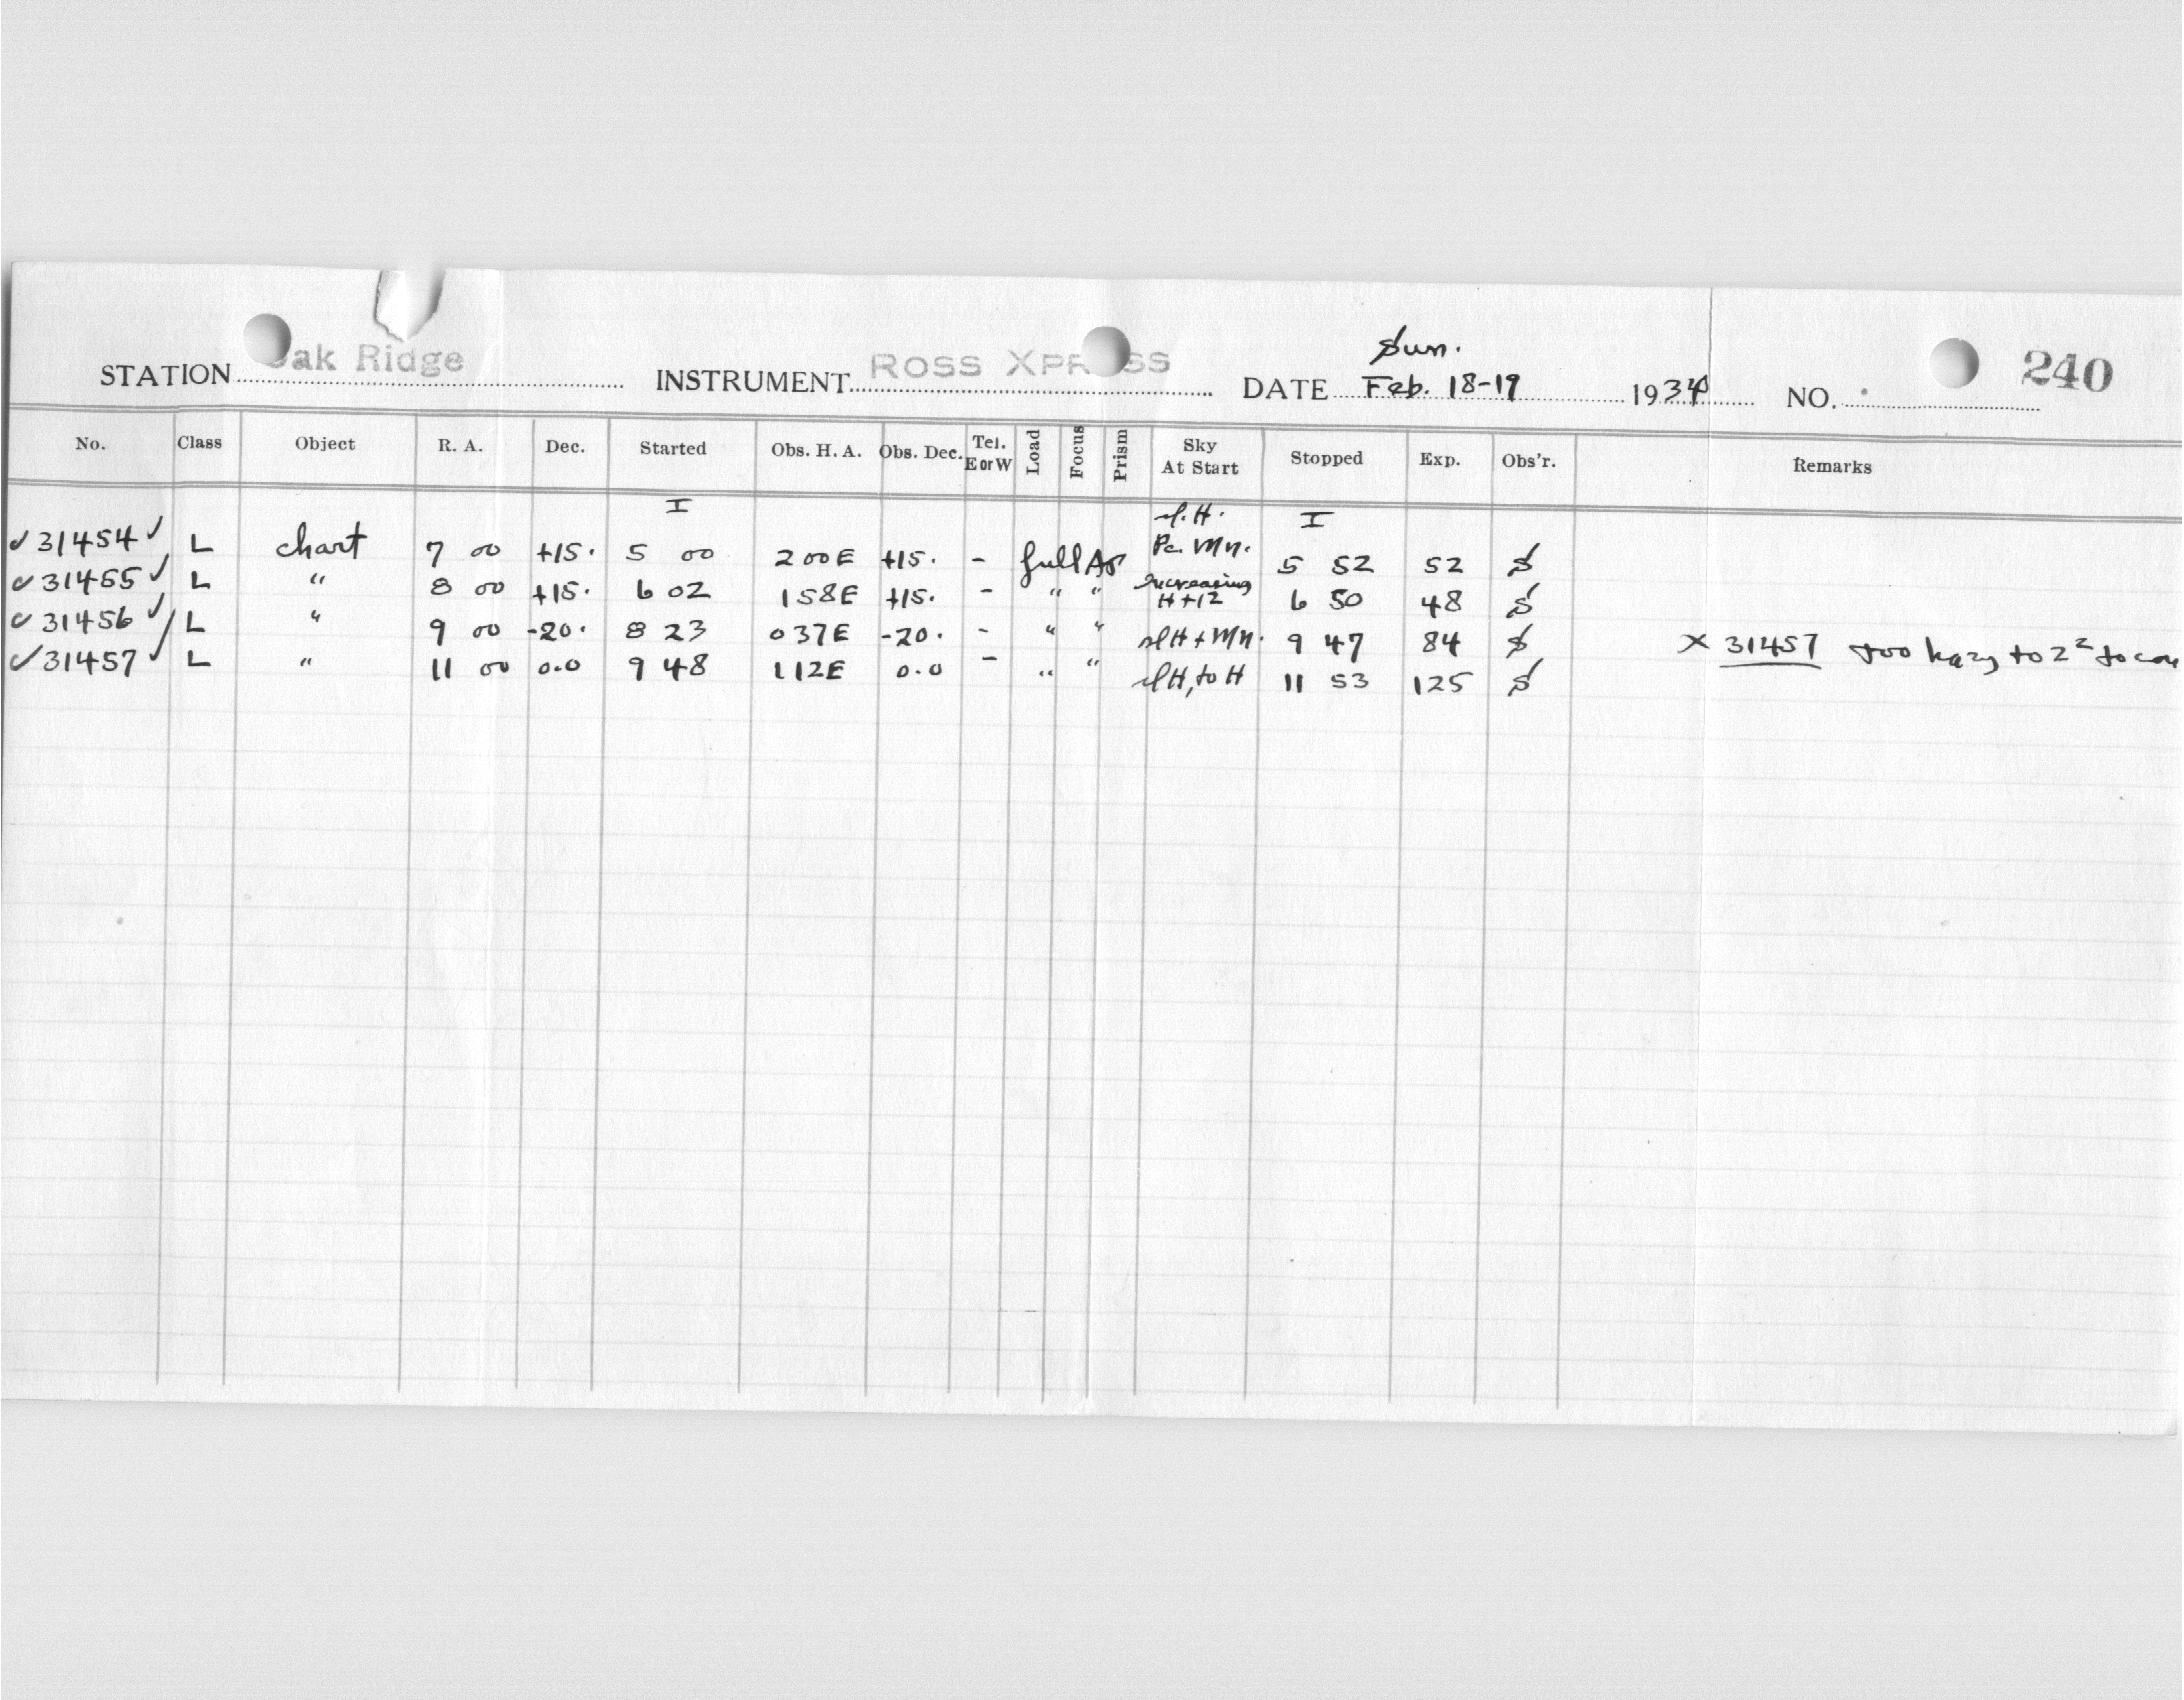 Sun.
STATION Oak Ridge INSTRUMENT ROSS XPRESS DATE Feb. 18-19 1934 NO. 240
No. Class Object R. A. Dec. Started Obs. H. A. Obs. Dec. Tel. E or W Load Focus Prism Sky At Start Stopped Exp. Obs'r. Remarks
I sl. H. I
✓ 31454 ✓ L chart 7 00 +15. 5 00 200E +15. - full Pc. Mn. 5 52 52 S
✓ 31455 ✓ L " 8 00 +15. 6 02 158E +15. - " " increasing H+12 6 50 48 S
✓ 31456 ✓ L " 9 00 -20. 8 23 037E -20. - " " sl H + Mn. 9 47 84 S
✓ 31457 ✓ L " 11 00 0.0 9 48 112E 0.0 - " " sl H, to H 11 53 125 S
X 31457 too hazy to